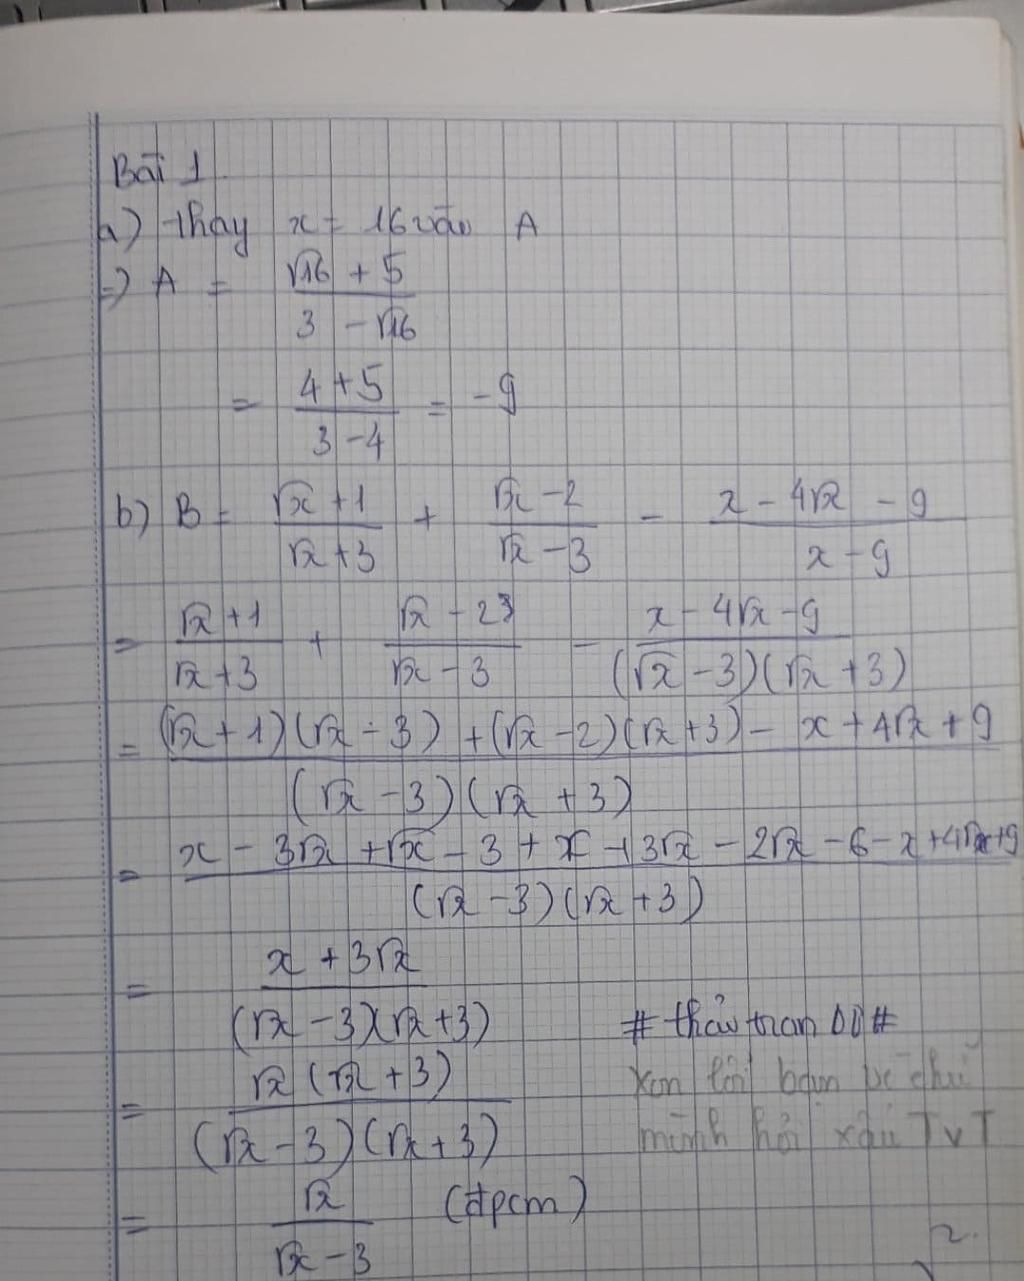 Bài 1
a) Thay x = 16 vào A
=> A = (√16 + 5)/(3 - √16)
= (4 + 5)/(3 - 4) = -9
b) B = (√x + 1)/(√x + 3) + (√x - 2)/(√x - 3) - (x - 4√x - 9)/(x - 9)
= (√x + 1)/(√x + 3) + (√x - 2)/(√x - 3) - (x - 4√x - 9)/((√x - 3)(√x + 3))
= ((√x + 1)(√x - 3) + (√x - 2)(√x + 3) - x + 4√x + 9)/((√x - 3)(√x + 3))
= (x - 3√x + √x - 3 + x + 3√x - 2√x - 6 - x + 4√x + 9)/((√x - 3)(√x + 3))
= (x + 3√x)/((√x - 3)(√x + 3))
# thảo tran DD #
= (√x(√x + 3))/((√x - 3)(√x + 3))
Xin lỗi bạn vì chữ
mình hơi xấu TvT
= √x/(√x - 3) (đpcm)
2.